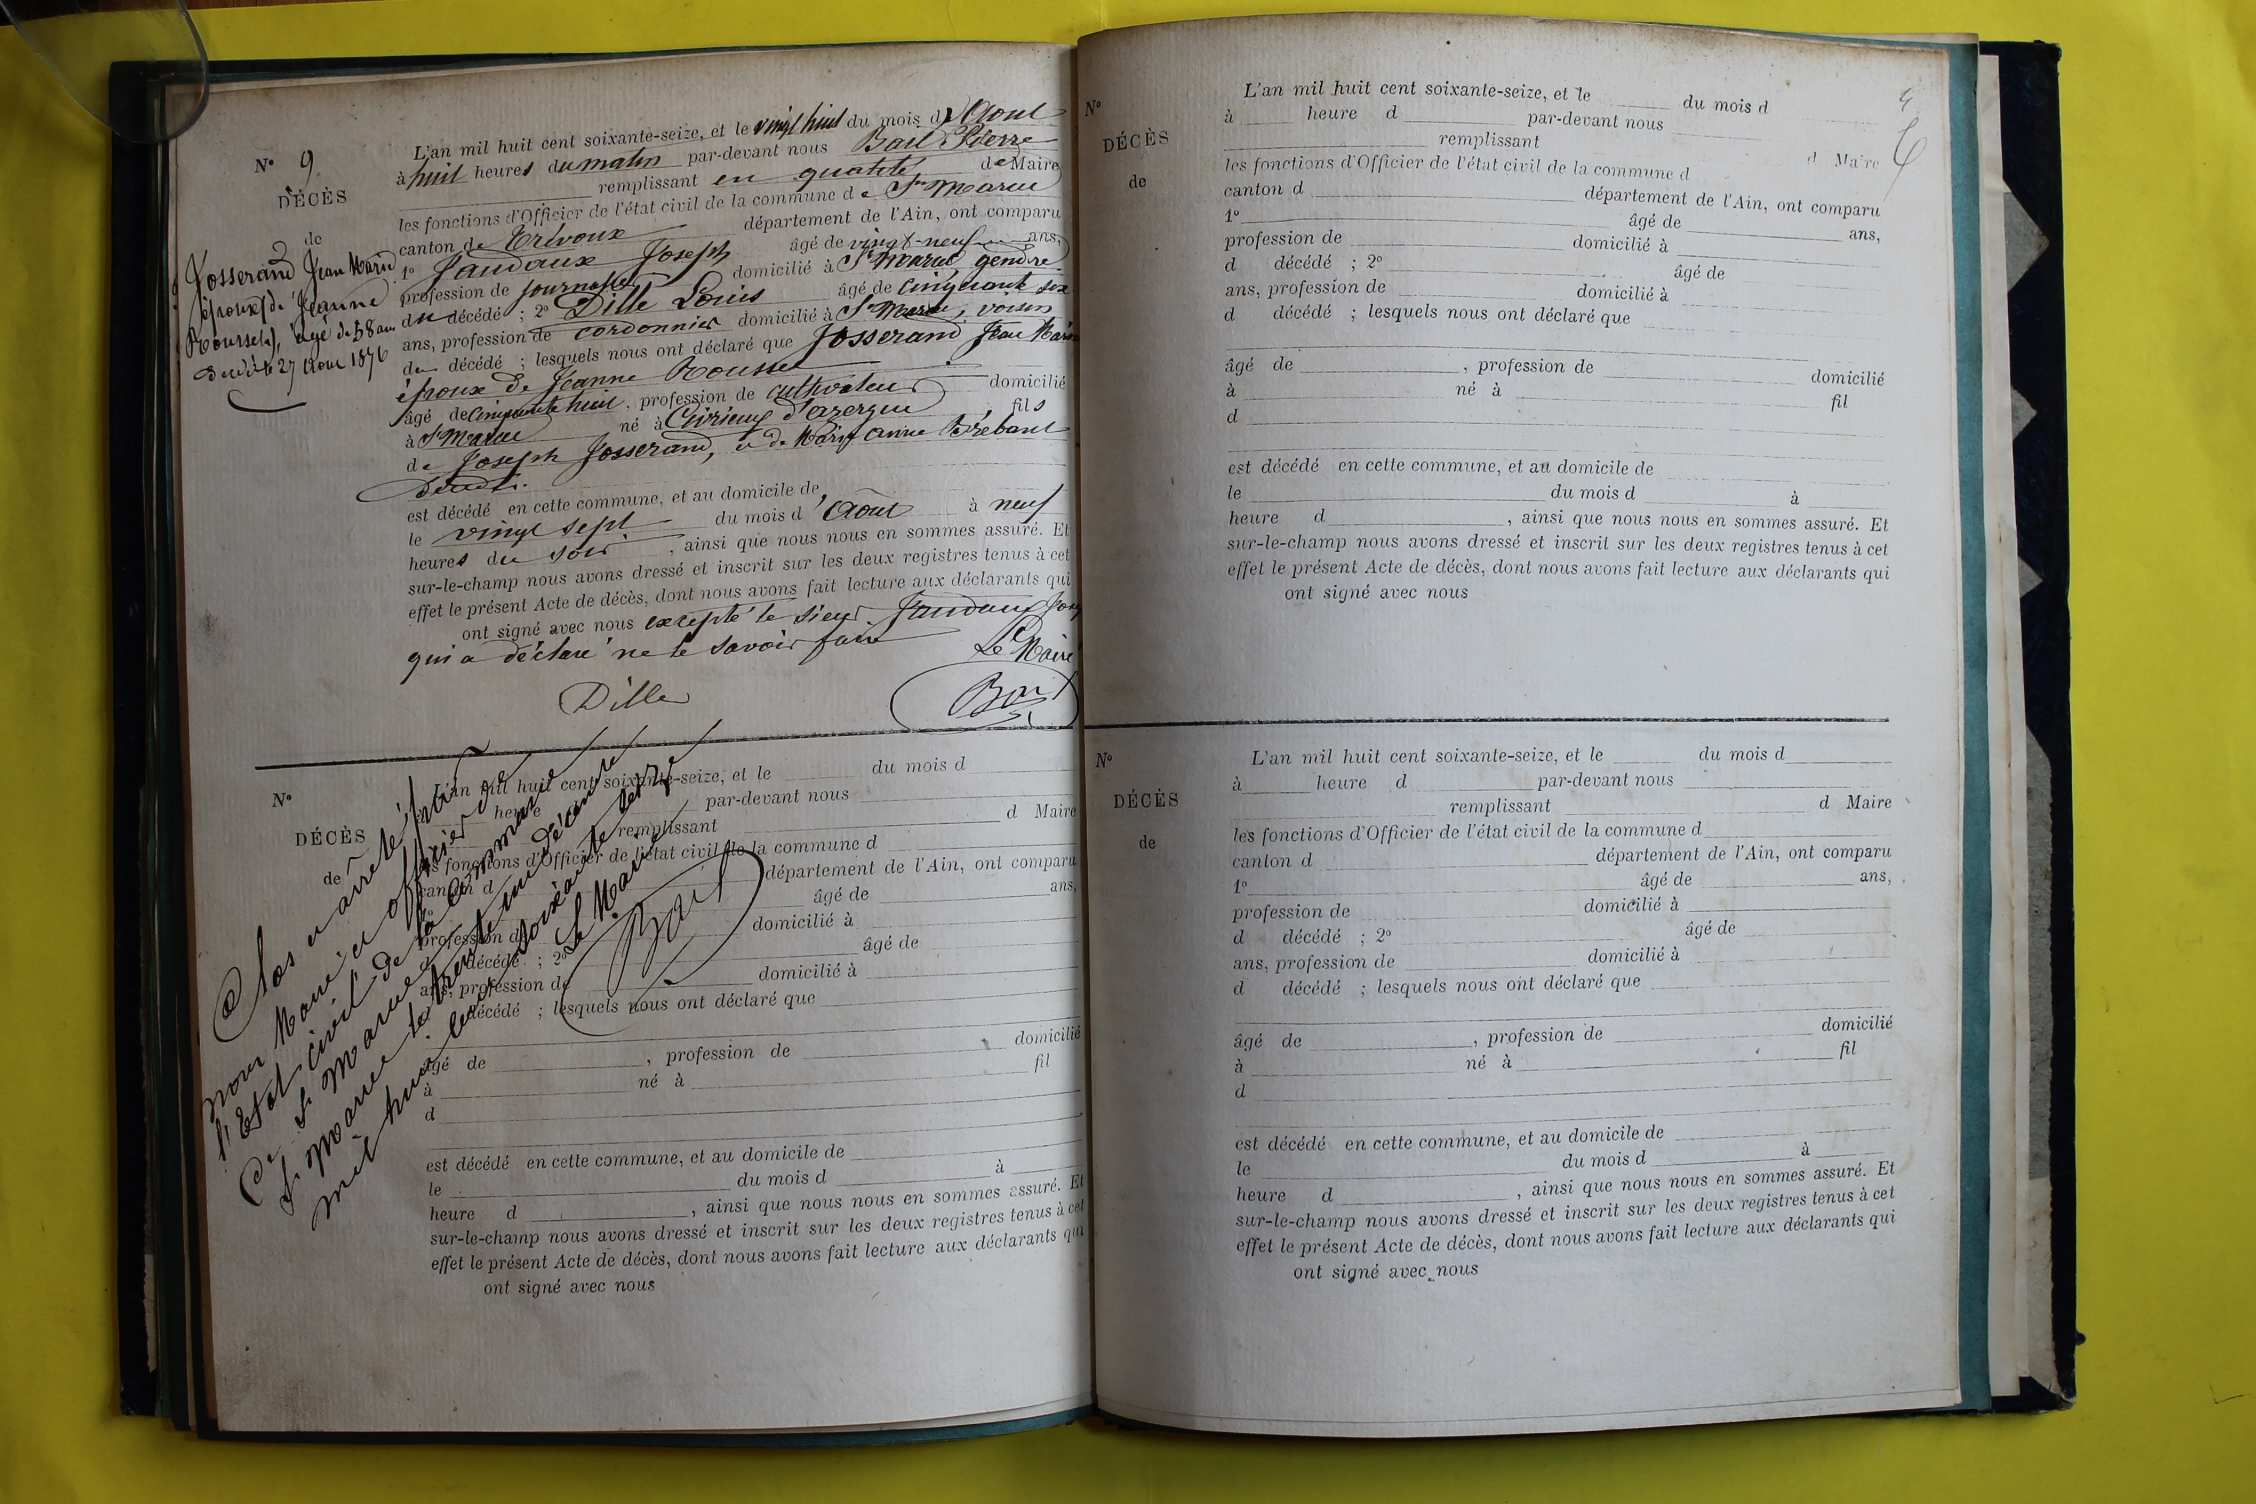 N° 9
DÉCÈS
de
Josserand Jean Marie
époux de Jeanne
Rousset, âgé de 58 ans
décédé le 27 Aout 1876
L'an mil huit cent soixante-seize, et le vingt huit du mois d'Aout
à huit heures du matin par-devant nous Pierre
remplissant en qualité de Maire
les fonctions d'Officier de l'état civil de la commune de St Marcel
canton de Trévoux département de l'Ain, ont comparu
1° Jandaux Joseph âgé de vingt-neuf ans,
profession de journalier domicilié à St Marcel gendre
du décédé ; 2° Dille Louis âgé de cinquante six
ans, profession de cordonnier domicilié à St Marcel, voisin
du décédé ; lesquels nous ont déclaré que Josserand Jean Marie
époux de Jeanne Rousset
âgé de cinquante huit, profession de cultivateur domicilié
à St Marcel né à Civrieux d'azergue fils
de Joseph Josserand, et de Marie Anne
décédés.
est décédé en cette commune, et au domicile de
le vingt sept du mois d'Aout à neuf
heures du soir, ainsi que nous nous en sommes assuré. Et
sur-le-champ nous avons dressé et inscrit sur les deux registres tenus à cet
effet le présent Acte de décès, dont nous avons fait lecture aux déclarants qui
ont signé avec nous excepté le sieur Jandaux
qui a déclaré ne le savoir faire
Le Maire
Dille
N°
DÉCÈS
de
L'an mil huit cent soixante-seize, et le du mois d
à heure d par-devant nous
remplissant d Maire
les fonctions d'Officier de l'état civil de la commune d
canton d département de l'Ain, ont comparu
1° âgé de ans,
profession de domicilié à
d décédé ; 2° âgé de
ans, profession de domicilié à
d décédé ; lesquels nous ont déclaré que
âgé de , profession de domicilié
à né à fil
d
est décédé en cette commune, et au domicile de
le du mois d à
heure d , ainsi que nous nous en sommes assuré. Et
sur-le-champ nous avons dressé et inscrit sur les deux registres tenus à cet
effet le présent Acte de décès, dont nous avons fait lecture aux déclarants qui
ont signé avec nous
Clos et arrêté par
nous Maire et officier de
l'Etat civil de la commune
de St Marcel
St Marcel le trente un décembre
mil huit cent soixante seize
Le Maire
N°
DÉCÈS
de
L'an mil huit cent soixante-seize, et le du mois d
à heure d par-devant nous
remplissant d Maire
les fonctions d'Officier de l'état civil de la commune d
canton d département de l'Ain, ont comparu
1° âgé de ans,
profession de domicilié à
d décédé ; 2° âgé de
ans, profession de domicilié à
d décédé ; lesquels nous ont déclaré que
âgé de , profession de domicilié
à né à fil
d
est décédé en cette commune, et au domicile de
le du mois d à
heure d , ainsi que nous nous en sommes assuré. Et
sur-le-champ nous avons dressé et inscrit sur les deux registres tenus à cet
effet le présent Acte de décès, dont nous avons fait lecture aux déclarants qui
ont signé avec nous
N°
DÉCÈS
de
L'an mil huit cent soixante-seize, et le du mois d
à heure d par-devant nous
remplissant d Maire
les fonctions d'Officier de l'état civil de la commune d
canton d département de l'Ain, ont comparu
1° âgé de ans,
profession de domicilié à
d décédé ; 2° âgé de
ans, profession de domicilié à
d décédé ; lesquels nous ont déclaré que
âgé de , profession de domicilié
à né à fil
d
est décédé en cette commune, et au domicile de
le du mois d à
heure d , ainsi que nous nous en sommes assuré. Et
sur-le-champ nous avons dressé et inscrit sur les deux registres tenus à cet
effet le présent Acte de décès, dont nous avons fait lecture aux déclarants qui
ont signé avec nous